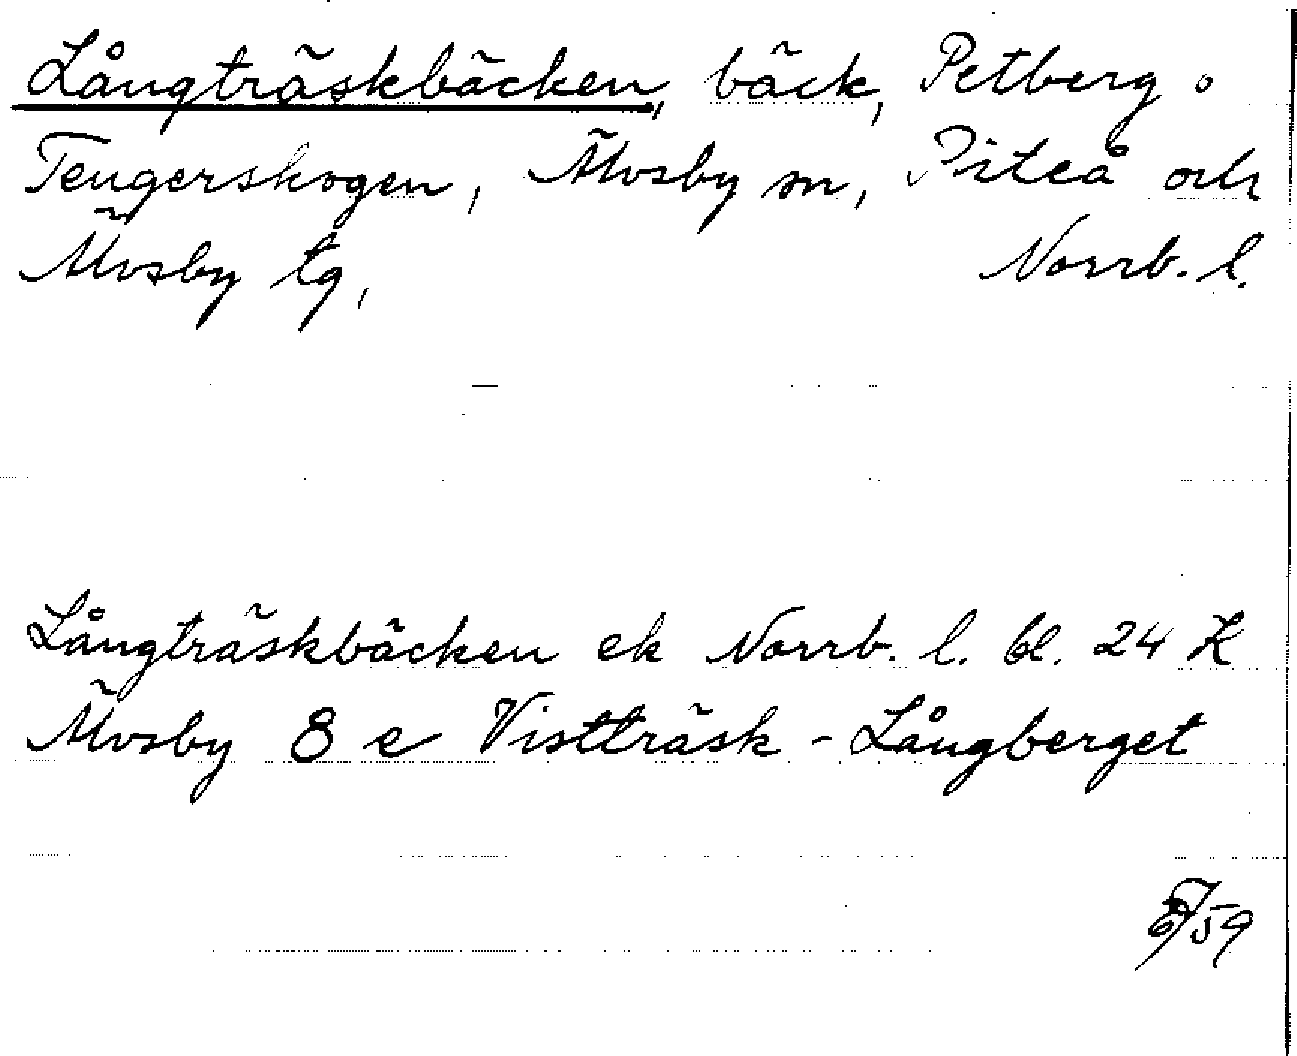 Långträskbäcken, bäck, Petberg o
Tengerskogen, Älvsby sn, Piteå och
Älvsby tg, Norrb. l.
Långträskbäcken ek Norrb. l. bl. 24 K
Älvsby 8 e Vistträsk - Långberget
/59